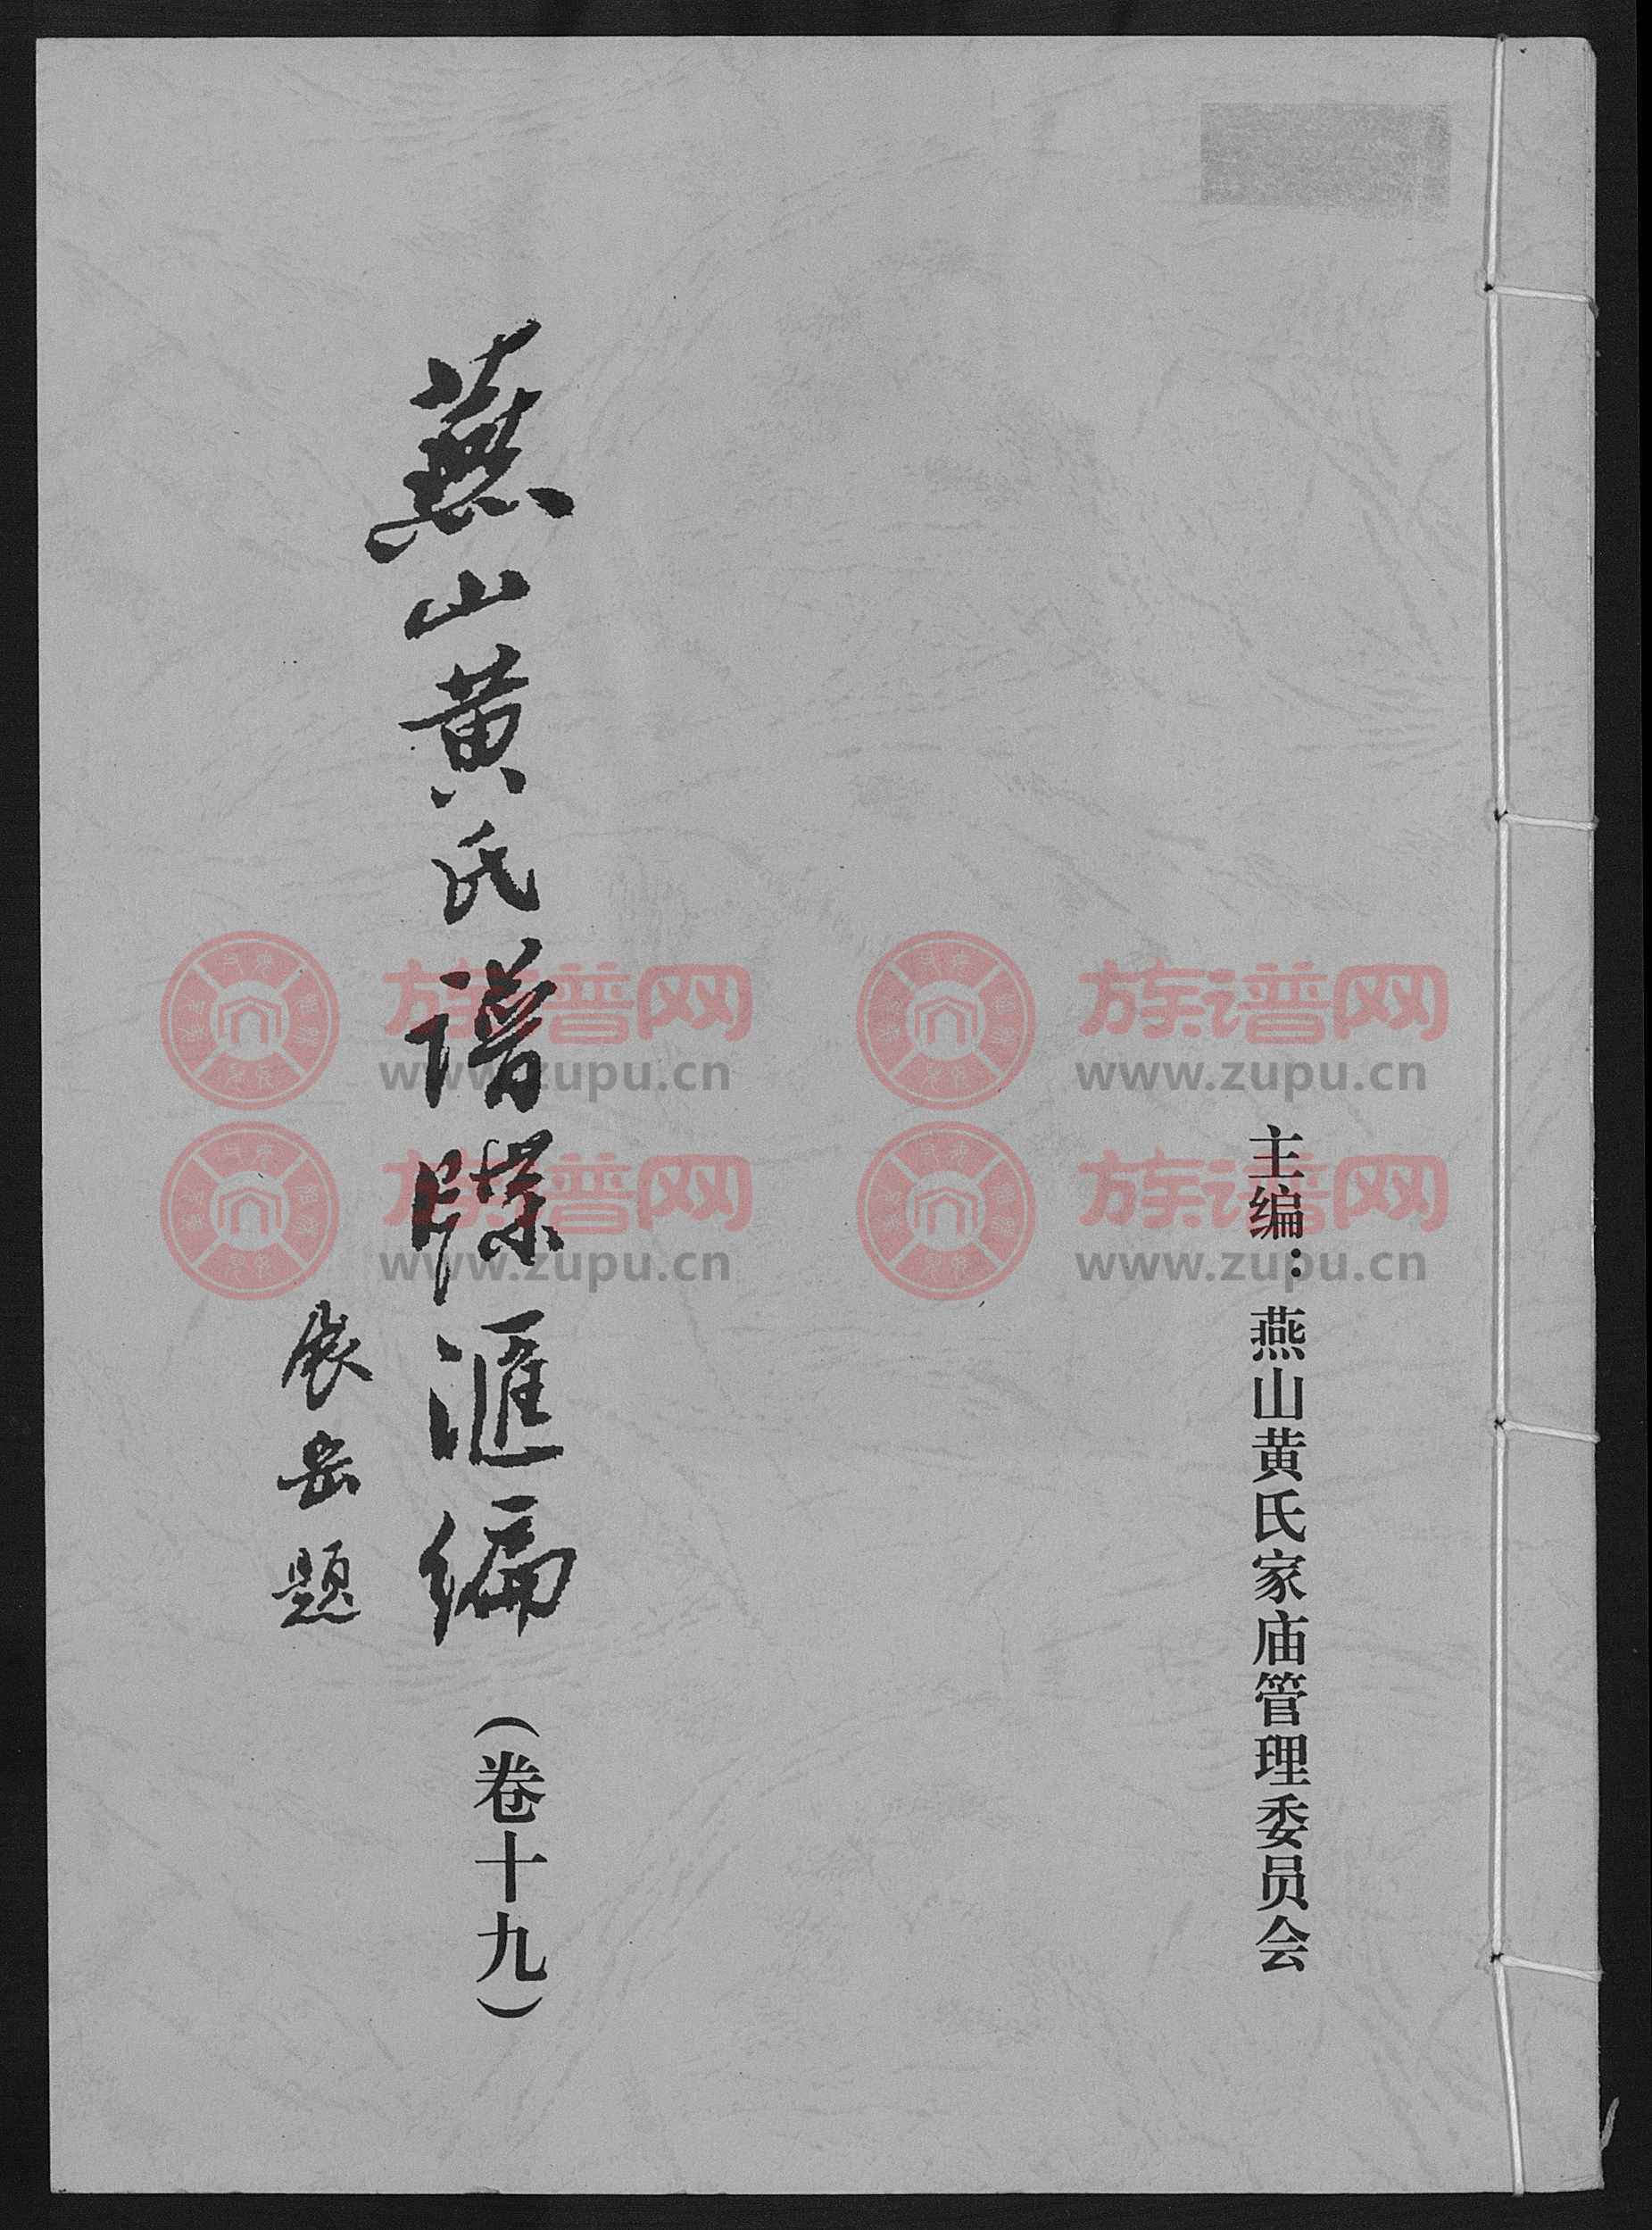 主编：燕山黄氏家庙管理委员会
燕山黄氏谱牒滙编
（卷十九）
展岳题
族谱网
www.zupu.cn
族谱网
www.zupu.cn
族谱网
www.zupu.cn
族谱网
www.zupu.cn